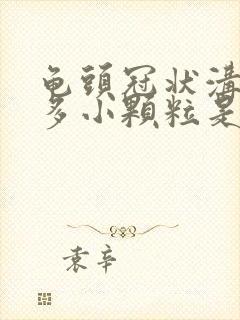 龟頭冠状溝
多小顆粒是
袁辛